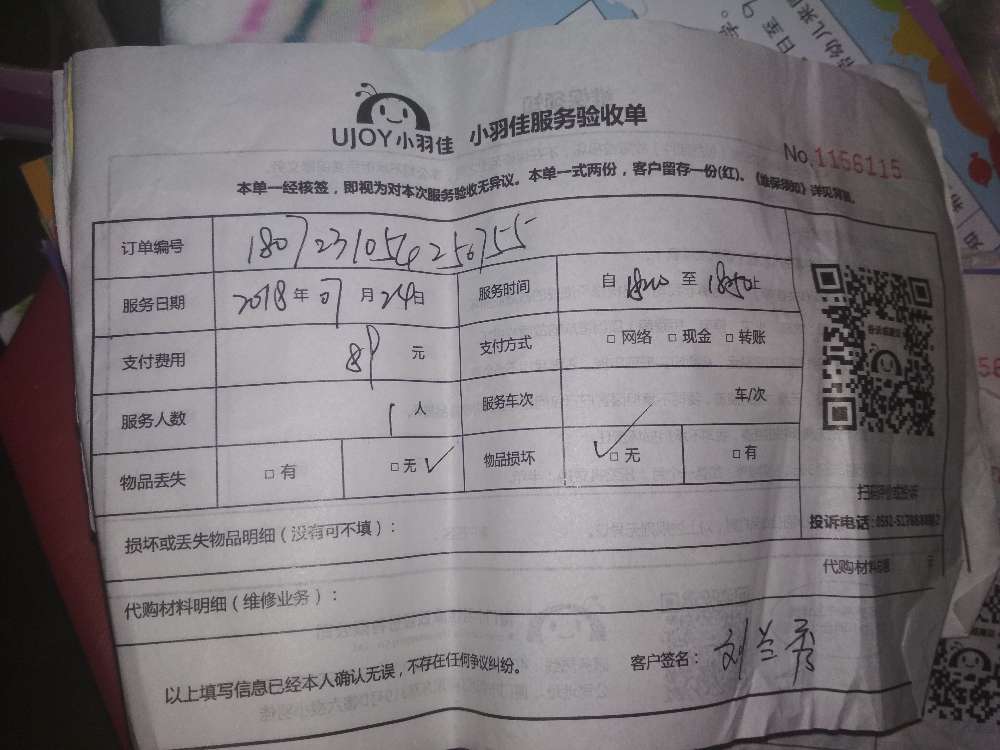 UJOY小羽佳 小羽佳服务验收单
No.1156115
本单一经核签，即视为对本次服务验收无异议。本单一式两份，客户留存一份(红)。《维保须知》详见背面。
订单编号 180723105425675
服务日期 2018年07月24日 服务时间 自 至 止
支付费用 89 元 支付方式 □网络 □现金 □转账
服务人数 1人 服务车次 车/次
物品丢失 □有 □无✓ 物品损坏 ✓□无 □有
扫码评价或投诉
投诉电话：0592-5178
损坏或丢失物品明细（没有可不填）：
代购材料
代购材料明细（维修业务）：
以上填写信息已经本人确认无误，不存在任何争议纠纷。 客户签名：刘兰秀